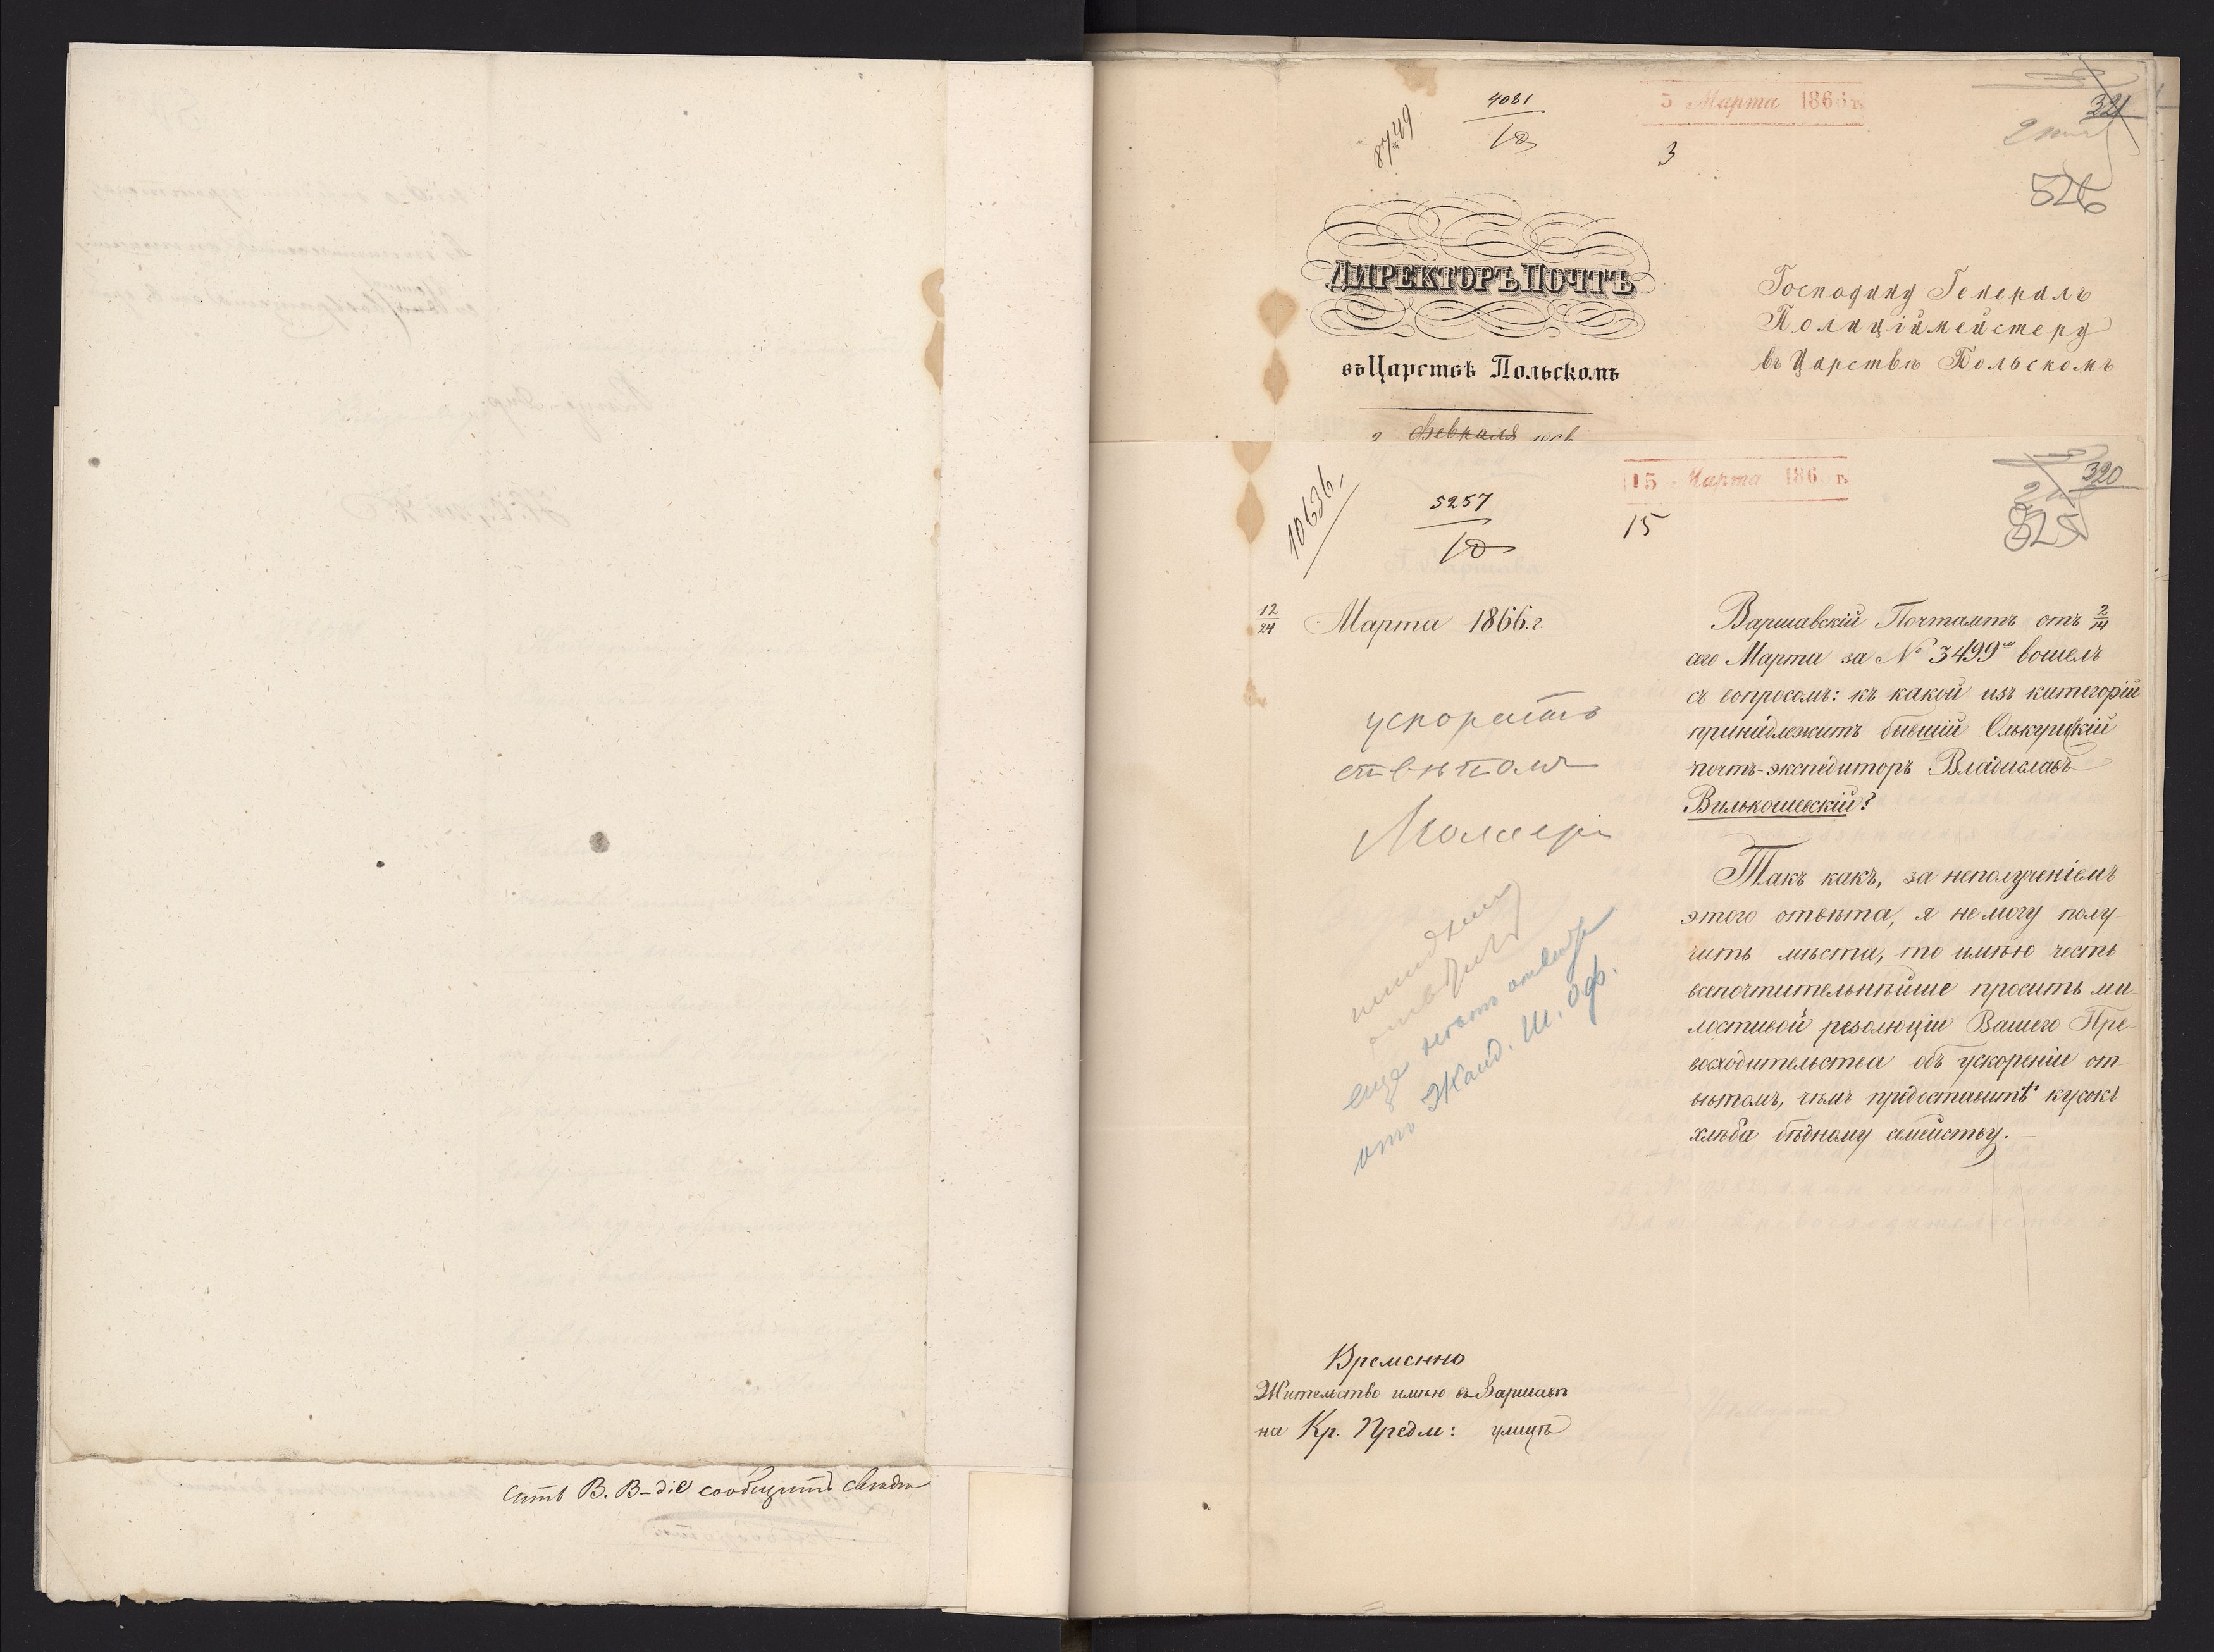 сить В. В-діе сообщить свѣдѣ
4081
12
8749
5 Марта 1866 г.
3
321
526
ДИРЕКТОРЪ ПОЧТЪ
въ Царствѣ Польскомъ
Господину Генералъ
Полиціймейстеру
въ Царствѣ Польскомъ
2 февраля
10636
5257
10
15 Марта 186 г.
15
320
525
12/24 Марта 1866 г.
ускорить
отвѣтомъ
Варшавскій Почтамтъ отъ 2/14
сего Марта за № 3499 вошелъ
съ вопросомъ: къ какой изъ категорій
принадлежитъ бывшій Олькушскій
почтъ-экспедиторъ Владиславъ
Вилькошевскій?
Такъ какъ, за неполученіемъ
этого отвѣта, я не могу полу-
чить мѣста, то имѣю честь
всепочтительнѣйше просить ми-
лостивой резолюціи Вашего Пре-
восходительства объ ускореніи от-
вѣтомъ, чѣмъ предоставитъ кусокъ
хлѣба бѣдному семейству.
еще нѣтъ отвѣта
отъ Жанд. Ш. Оф.
Временно
Жительство имѣю въ Варшавѣ
на Кр. Предм: улицѣ